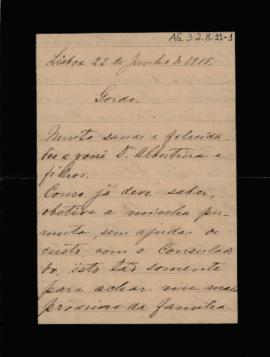 AG 3.2.8.11-1
Lisboa 22 de Junho de 1915.
Gordo.
Muita saude e felicida-
des e voni D. Albertina e
filhos.
Como já deve saber,
obtive a minha per-
muta, sem ajudas de
custo, com o Consulado
do, isto tão somente
para achar-me mais
proximo da familia